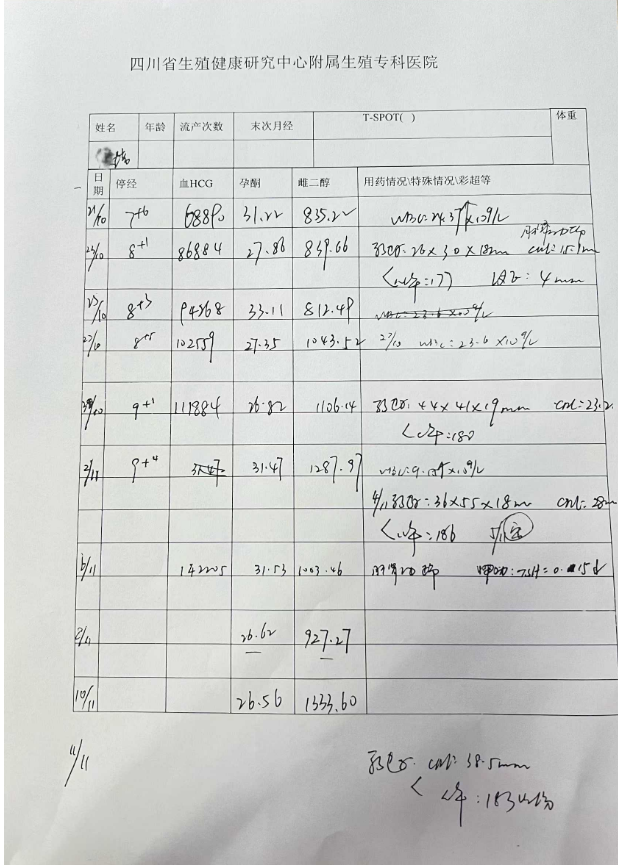 四川省生殖健康研究中心附属生殖专科医院
姓名 年龄 流产次数 末次月经 T-SPOT( ) 体重
日期 停经 血HCG 孕酮 雌二醇 用药情况\特殊情况\彩超等
21/10 7+6 68890 31.22 835.22 WBC:24.37↑×10^9/L
23/10 8+1 86884 27.86 839.66 孕囊:26×30×18mm CRL:15.1mm
心率:177 4mm
25/10 8+3 94368 33.11 812.49
27/10 8+5 102559 27.35 1043.52 27/10 WBC:23.6×10^9/L
9+1 111884 26.82 1106.14 孕囊:44×41×19mm CRL:23.2
心率:180
2/11 9+4 31.47 1287.97 WBC:9.13↑×10^9/L
4/11 孕囊:36×55×18m CRL:28m
心率:186
6/11 142205 31.53 1003.46 肝肾功 TSH=0.15↓
26.62 927.27
10/11 26.56 1333.60
11/11 孕囊: CRL:38.5mm
心率:183次/分